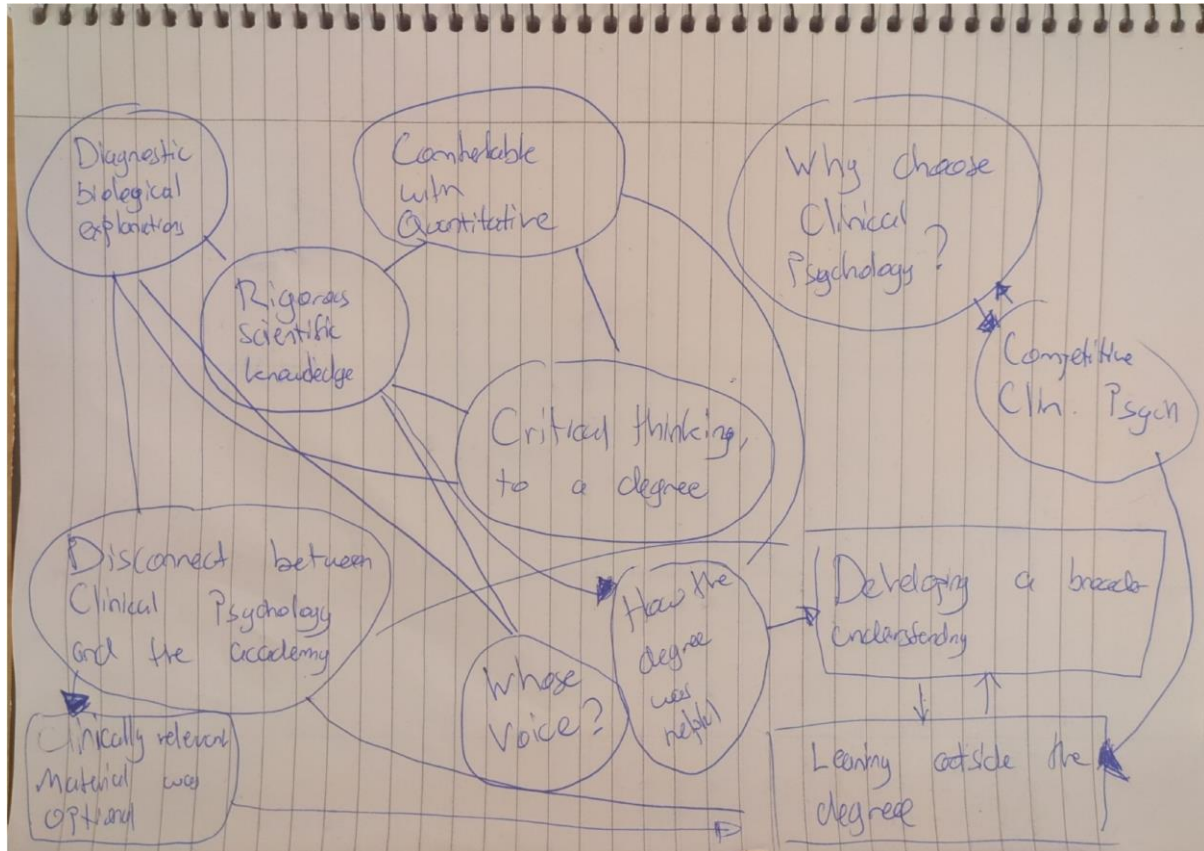 Diagnostic
biological
explanations
Comfortable
with
Quantitative
Why choose
Clinical
Psychology?
Rigorous
scientific
knowledge
Competitive
Clin. Psych
Critical thinking,
to a degree
Disconnect between
Clinical Psychology
and the academy
Whose
Voice?
How the
degree
was
helpful
Developing a broader
understanding
Clinically relevant
Material was
Optional
Learning outside the
degree